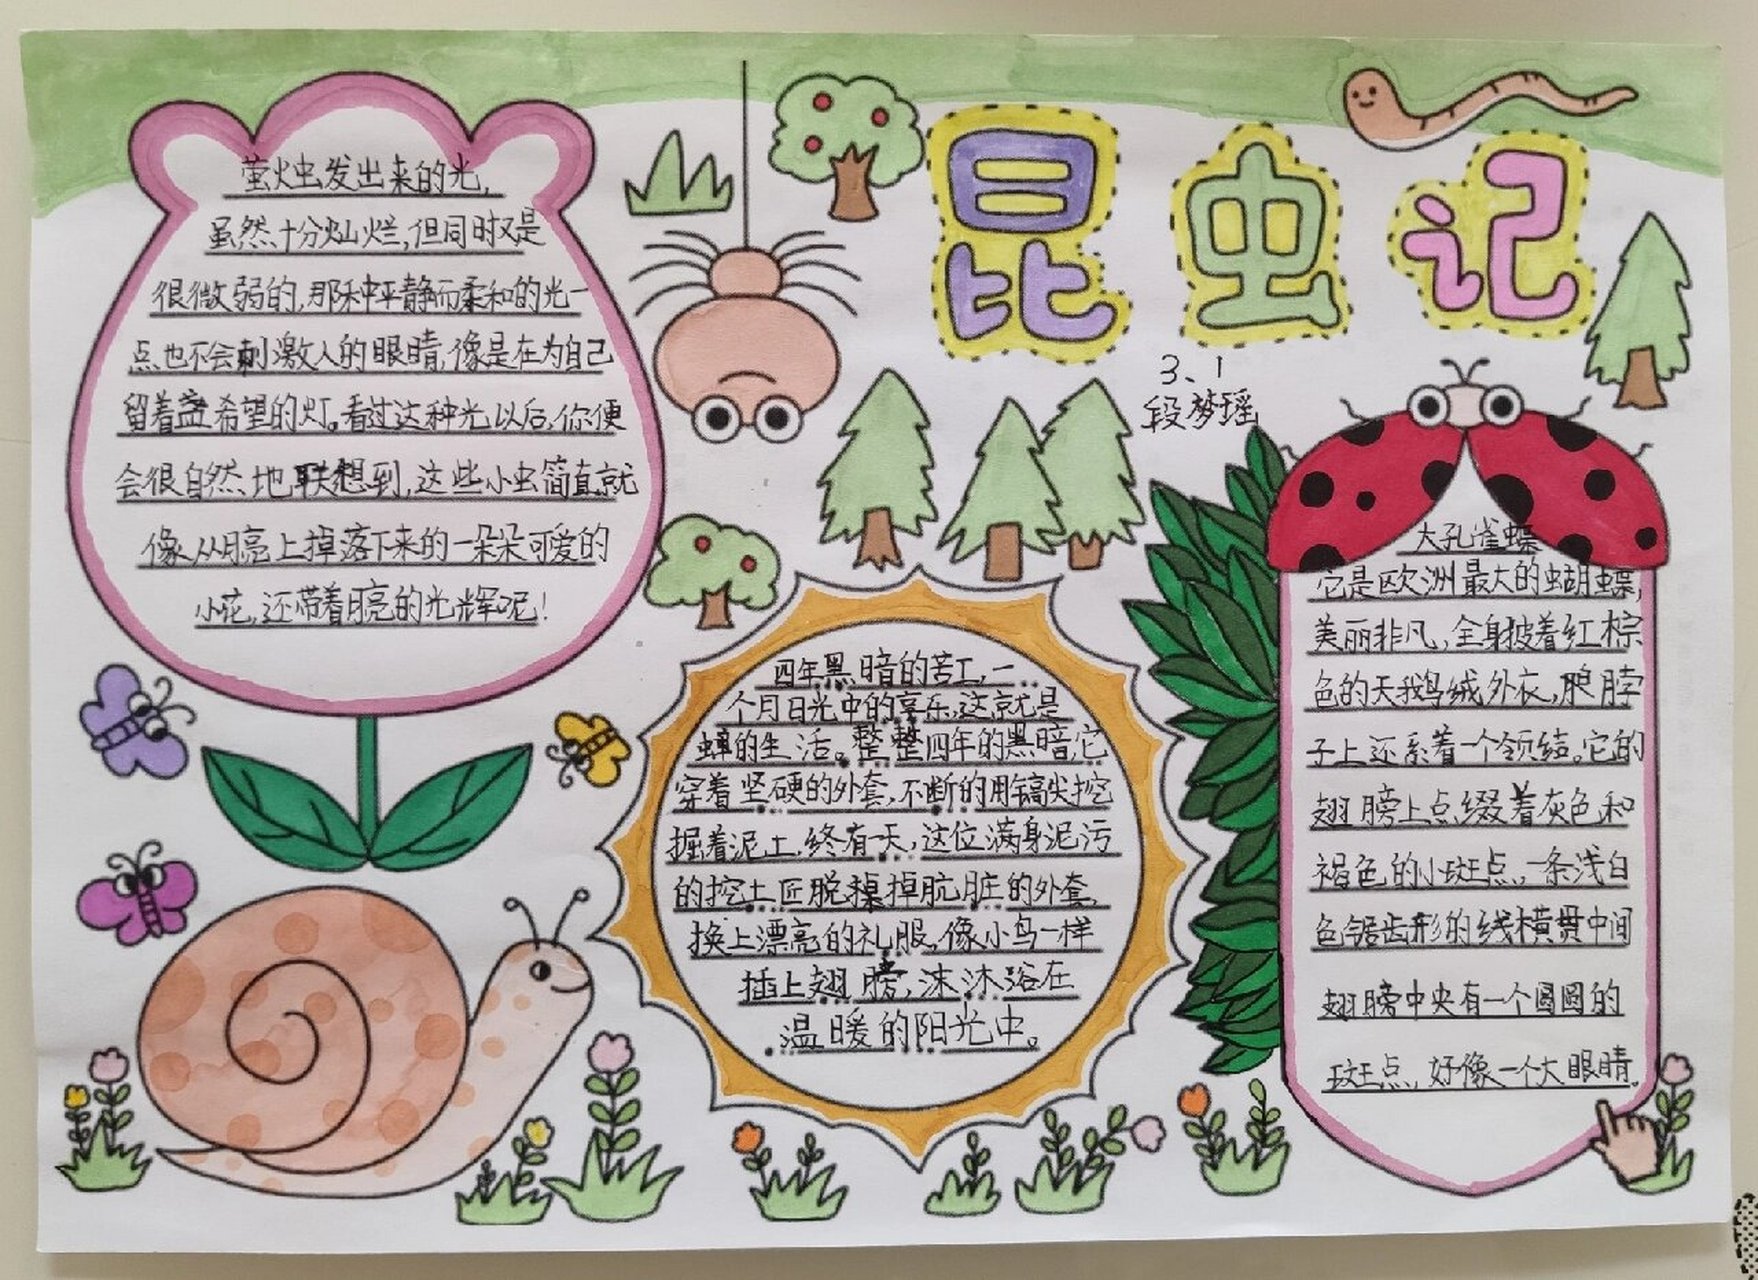 昆虫记
3、1
段梦瑶
萤火虫发出来的光,
虽然十分灿烂,但同时又是
很微弱的,那种平静而柔和的光一
点也不会刺激人的眼睛,像是在为自己
留着盏希望的灯。看过这种光以后,你便
会很自然地联想到,这些小虫简直就
像从月亮上掉落下来的一朵朵可爱的
小花,还带着月亮的光辉呢!
四年黑暗的苦工,一
个月日光中的享乐,这就是
蝉的生活。整整四年的黑暗,它
穿着坚硬的外套,不断的用镐尖挖
掘着泥土,终有一天,这位满身泥污
的挖土匠脱掉肮脏的外套,
换上漂亮的礼服,像小鸟一样
插上翅膀,沫沐浴在
温暖的阳光中。
大孔雀蝶
它是欧洲最大的蝴蝶,
美丽非凡,全身披着红棕
色的天鹅绒外衣,脖
子上还系着一个领结。它的
翅膀上点缀着灰色和
褐色的小斑点,一条浅白
色锯齿形的线横贯中间
翅膀中央有一个圆圆的
斑点,好像一个大眼睛。